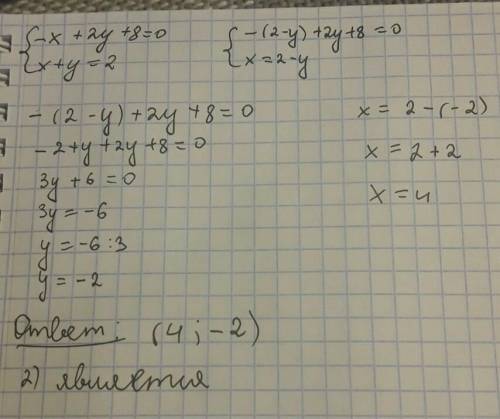 {-x + 2y + 8 = 0
{x + y = 2
{-(2-y) + 2y + 8 = 0
{x = 2 - y
-(2 - y) + 2y + 8 = 0
-2 + y + 2y + 8 = 0
3y + 6 = 0
3y = -6
y = -6 : 3
y = -2
x = 2 - (-2)
x = 2 + 2
x = 4
Ответ: (4 ; -2)
2) является